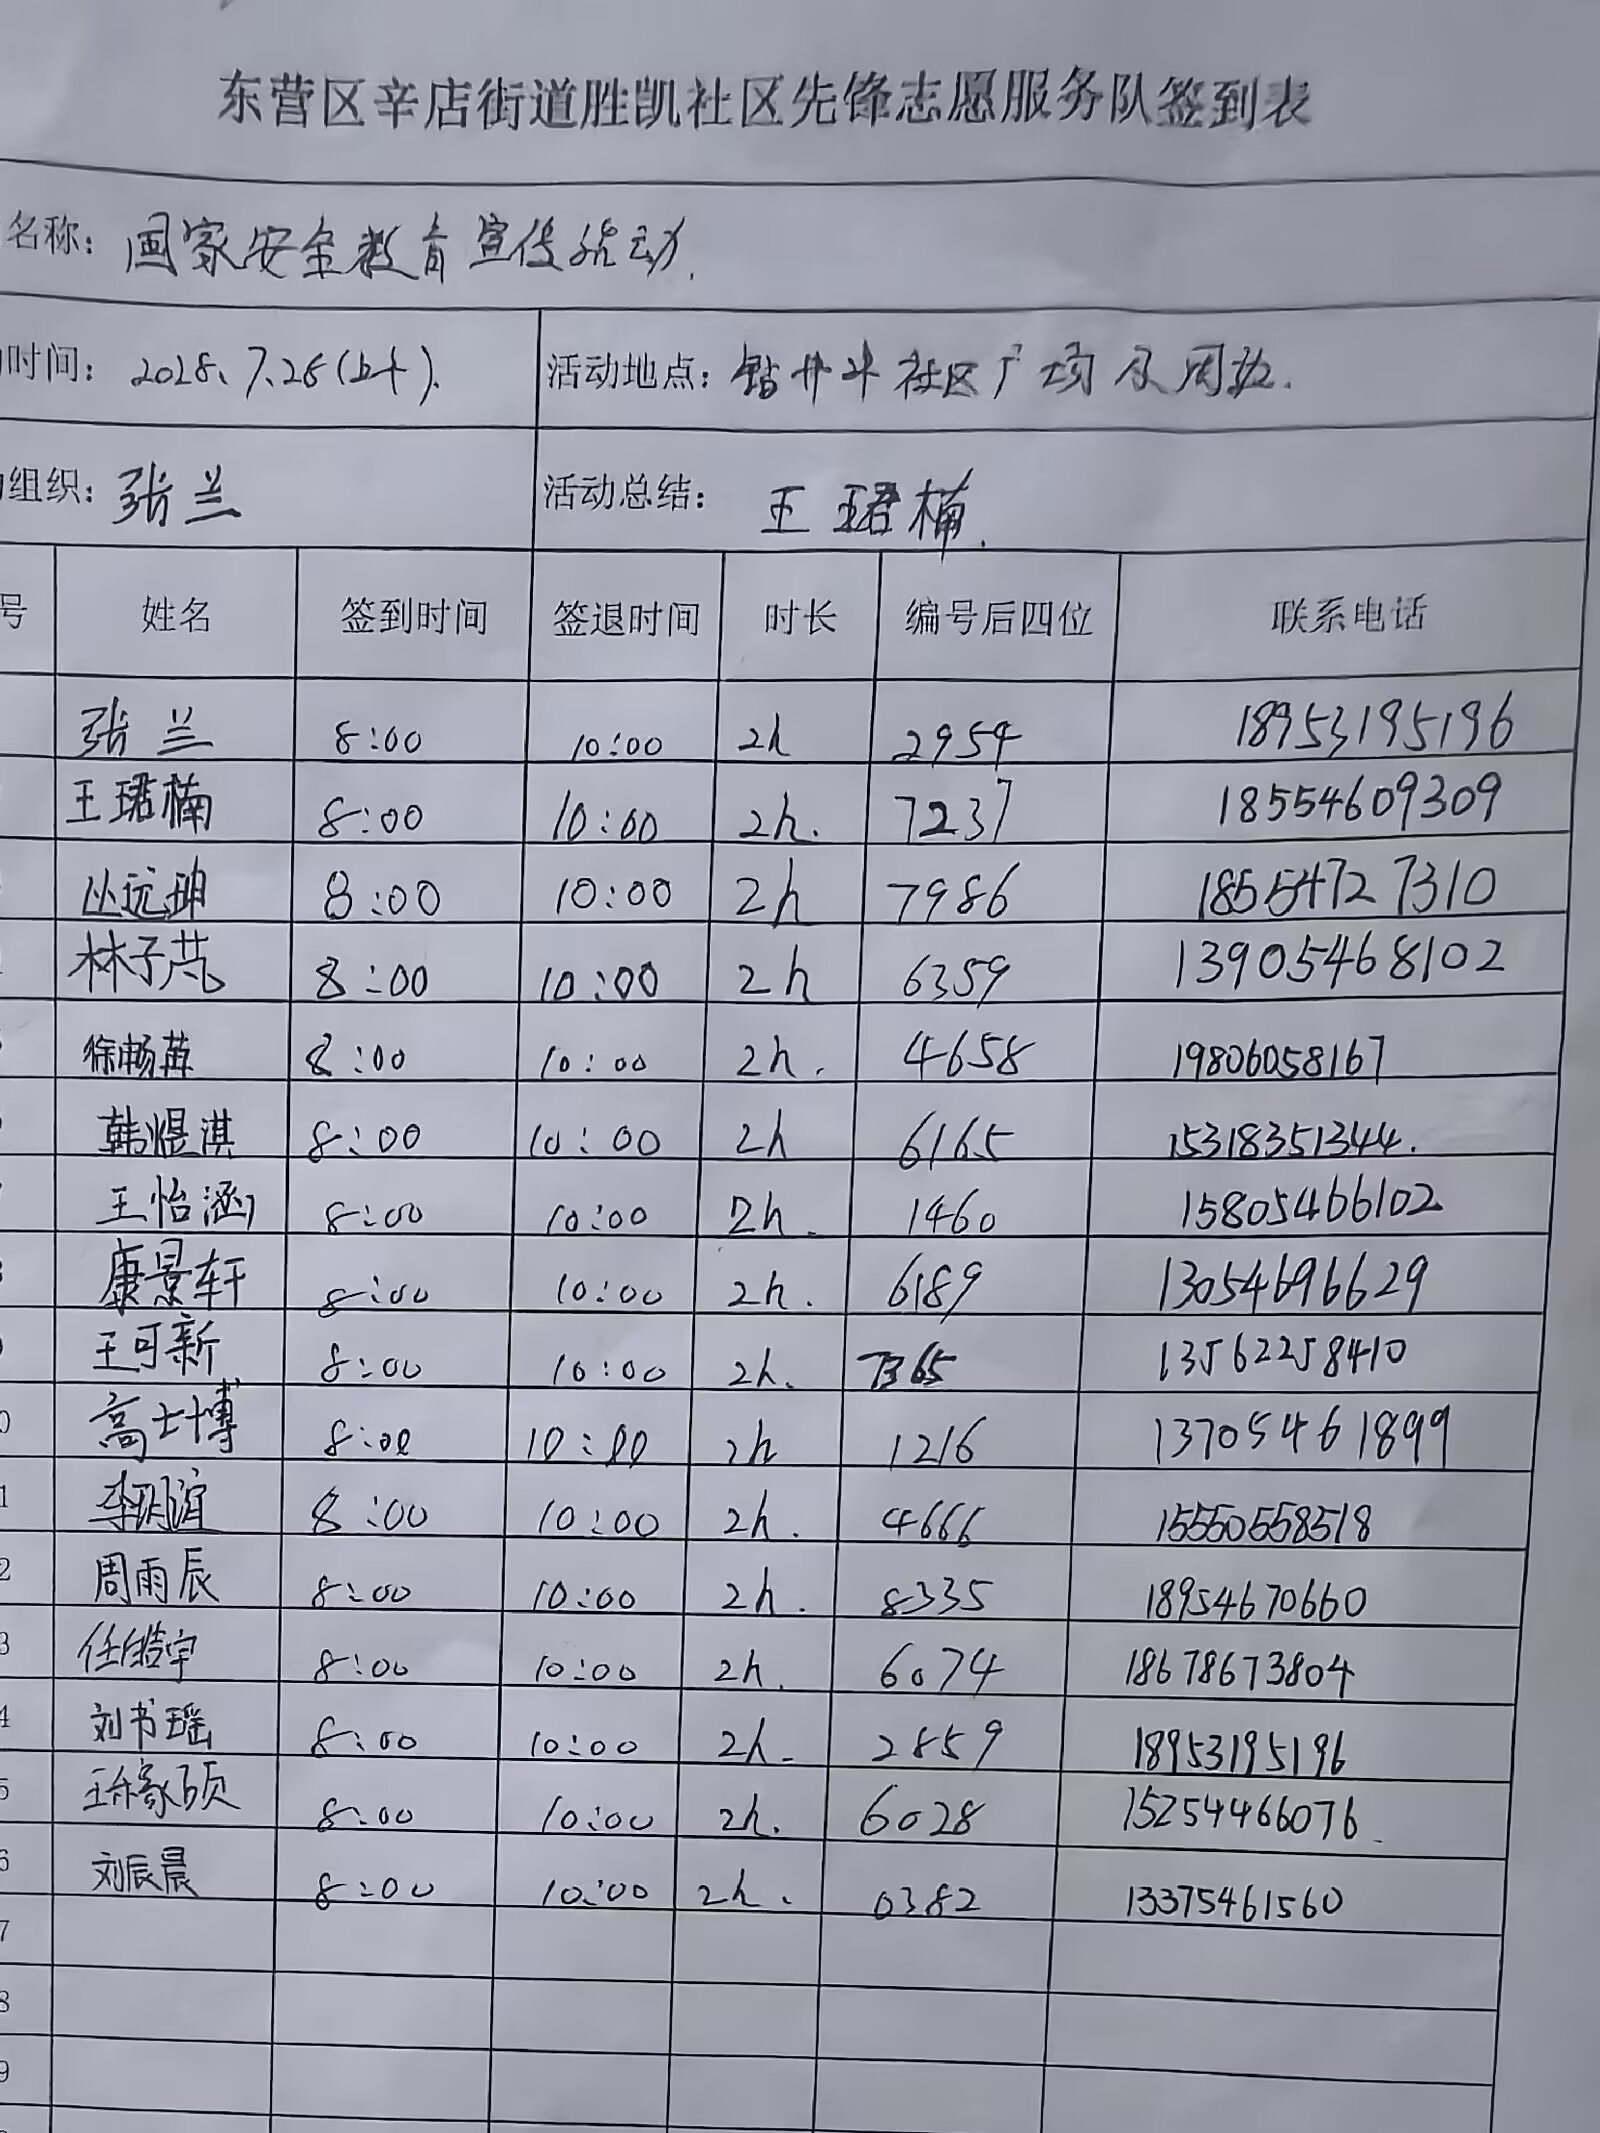 东营区辛店街道胜凯社区先锋志愿服务队签到表
名称: 国家安全教育宣传活动.
时间: 2025、7.26(上午). 活动地点: 钻井社区广场及周边.
组织: 张兰 活动总结: 王珺楠.
号 姓名 签到时间 签退时间 时长 编号后四位 联系电话
张兰 8:00 10:00 2h 2954 18953195196
王珺楠 8:00 10:00 2h. 7237 18554609309
丛远珅 8:00 10:00 2h 7986 18554727310
林子芃 8:00 10:00 2h 6359 13905468102
徐畅苒 8:00 10:00 2h. 4658 19806058167
韩煜淇 8:00 10:00 2h 6165 15318351344.
王怡涵 8:00 10:00 2h. 1460 15805466102
康景轩 8:00 10:00 2h. 6189 13054696629
9 王可新 8:00 10:00 2h. 7365 13562258410
0 高士博 8:00 10:00 2h 1216 13705461899
1 李玥谊 8:00 10:00 2h. 4666 15550558518
2 周雨辰 8:00 10:00 2h. 8335 18954670660
3 任皓宇 8:00 10:00 2h. 6074 18678673804
4 刘书瑶 8:00 10:00 2h. 2859 18953195196
5 王梓硕 8:00 10:00 2h. 6028 15254466076.
6 刘辰晨 8:00 10:00 2h. 0382 13375461560
7
8
9